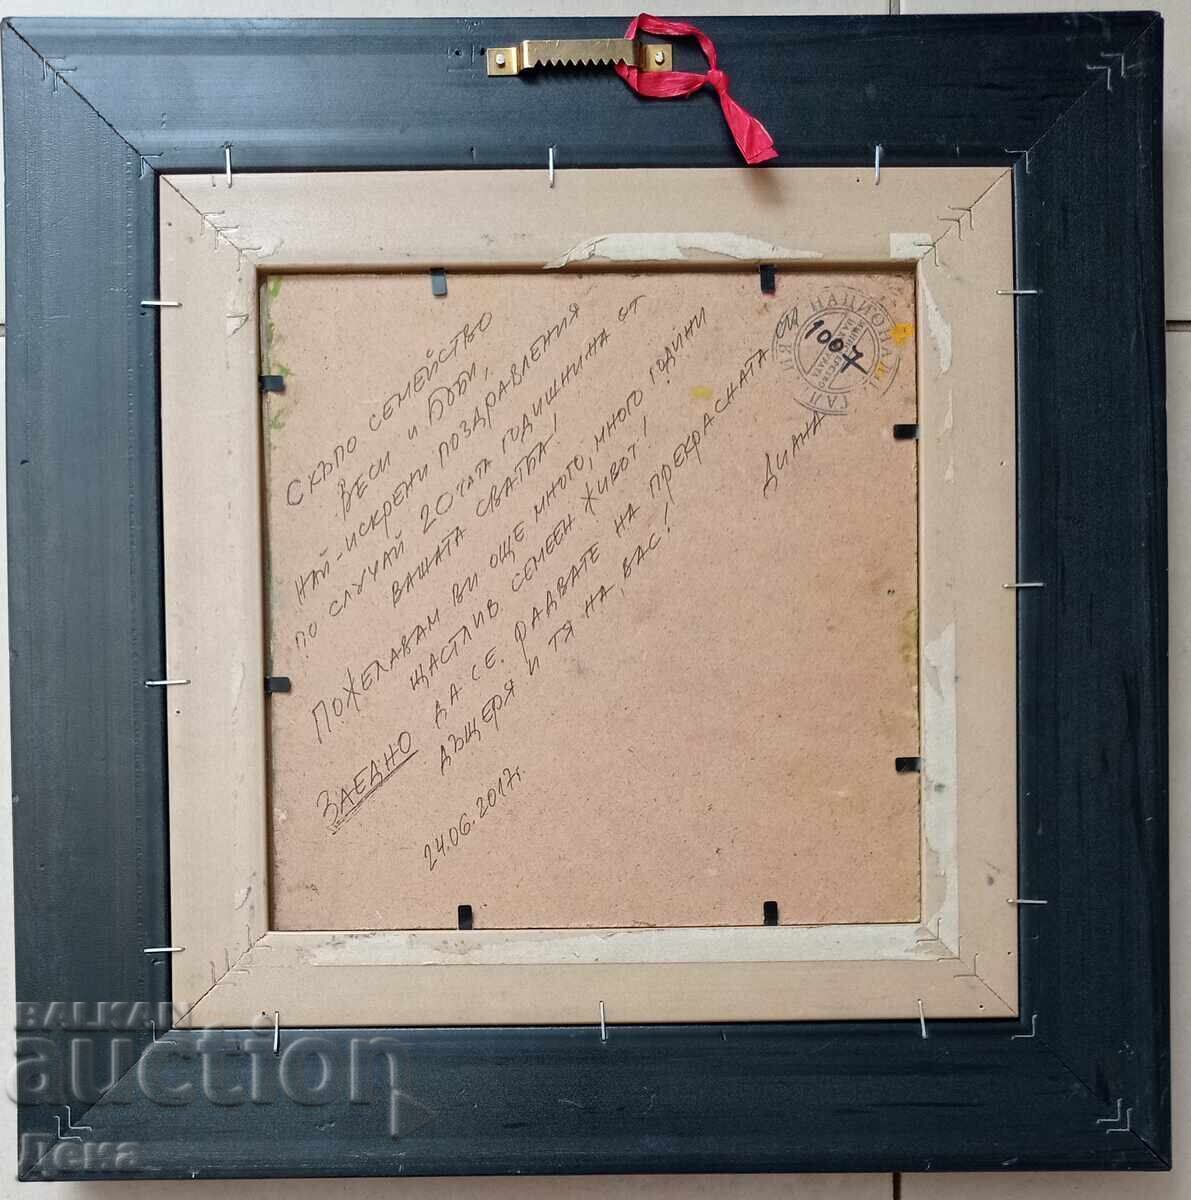 СКЪПО СЕМЕЙСТВО
ВЕСИ И БОБИ,
НАЙ-ИСКРЕНИ ПОЗДРАВЛЕНИЯ
ПО СЛУЧАЙ 20ТАТА ГОДИШНИНА ОТ
ВАШАТА СВАТБА!
ПОЖЕЛАВАМ ВИ ОЩЕ МНОГО, МНОГО ГОДИНИ
ЩАСТЛИВ СЕМЕЕН ЖИВОТ!
ЗАЕДНО ДА СЕ РАДВАТЕ НА ПРЕКРАСНАТА СИ
ДЪЩЕРЯ И ТЯ НА ВАС!
24.06.2017г.
ДИАНА
НАЦИОНАЛ
ГАЛ
1007
BALKAN
auction
Дека